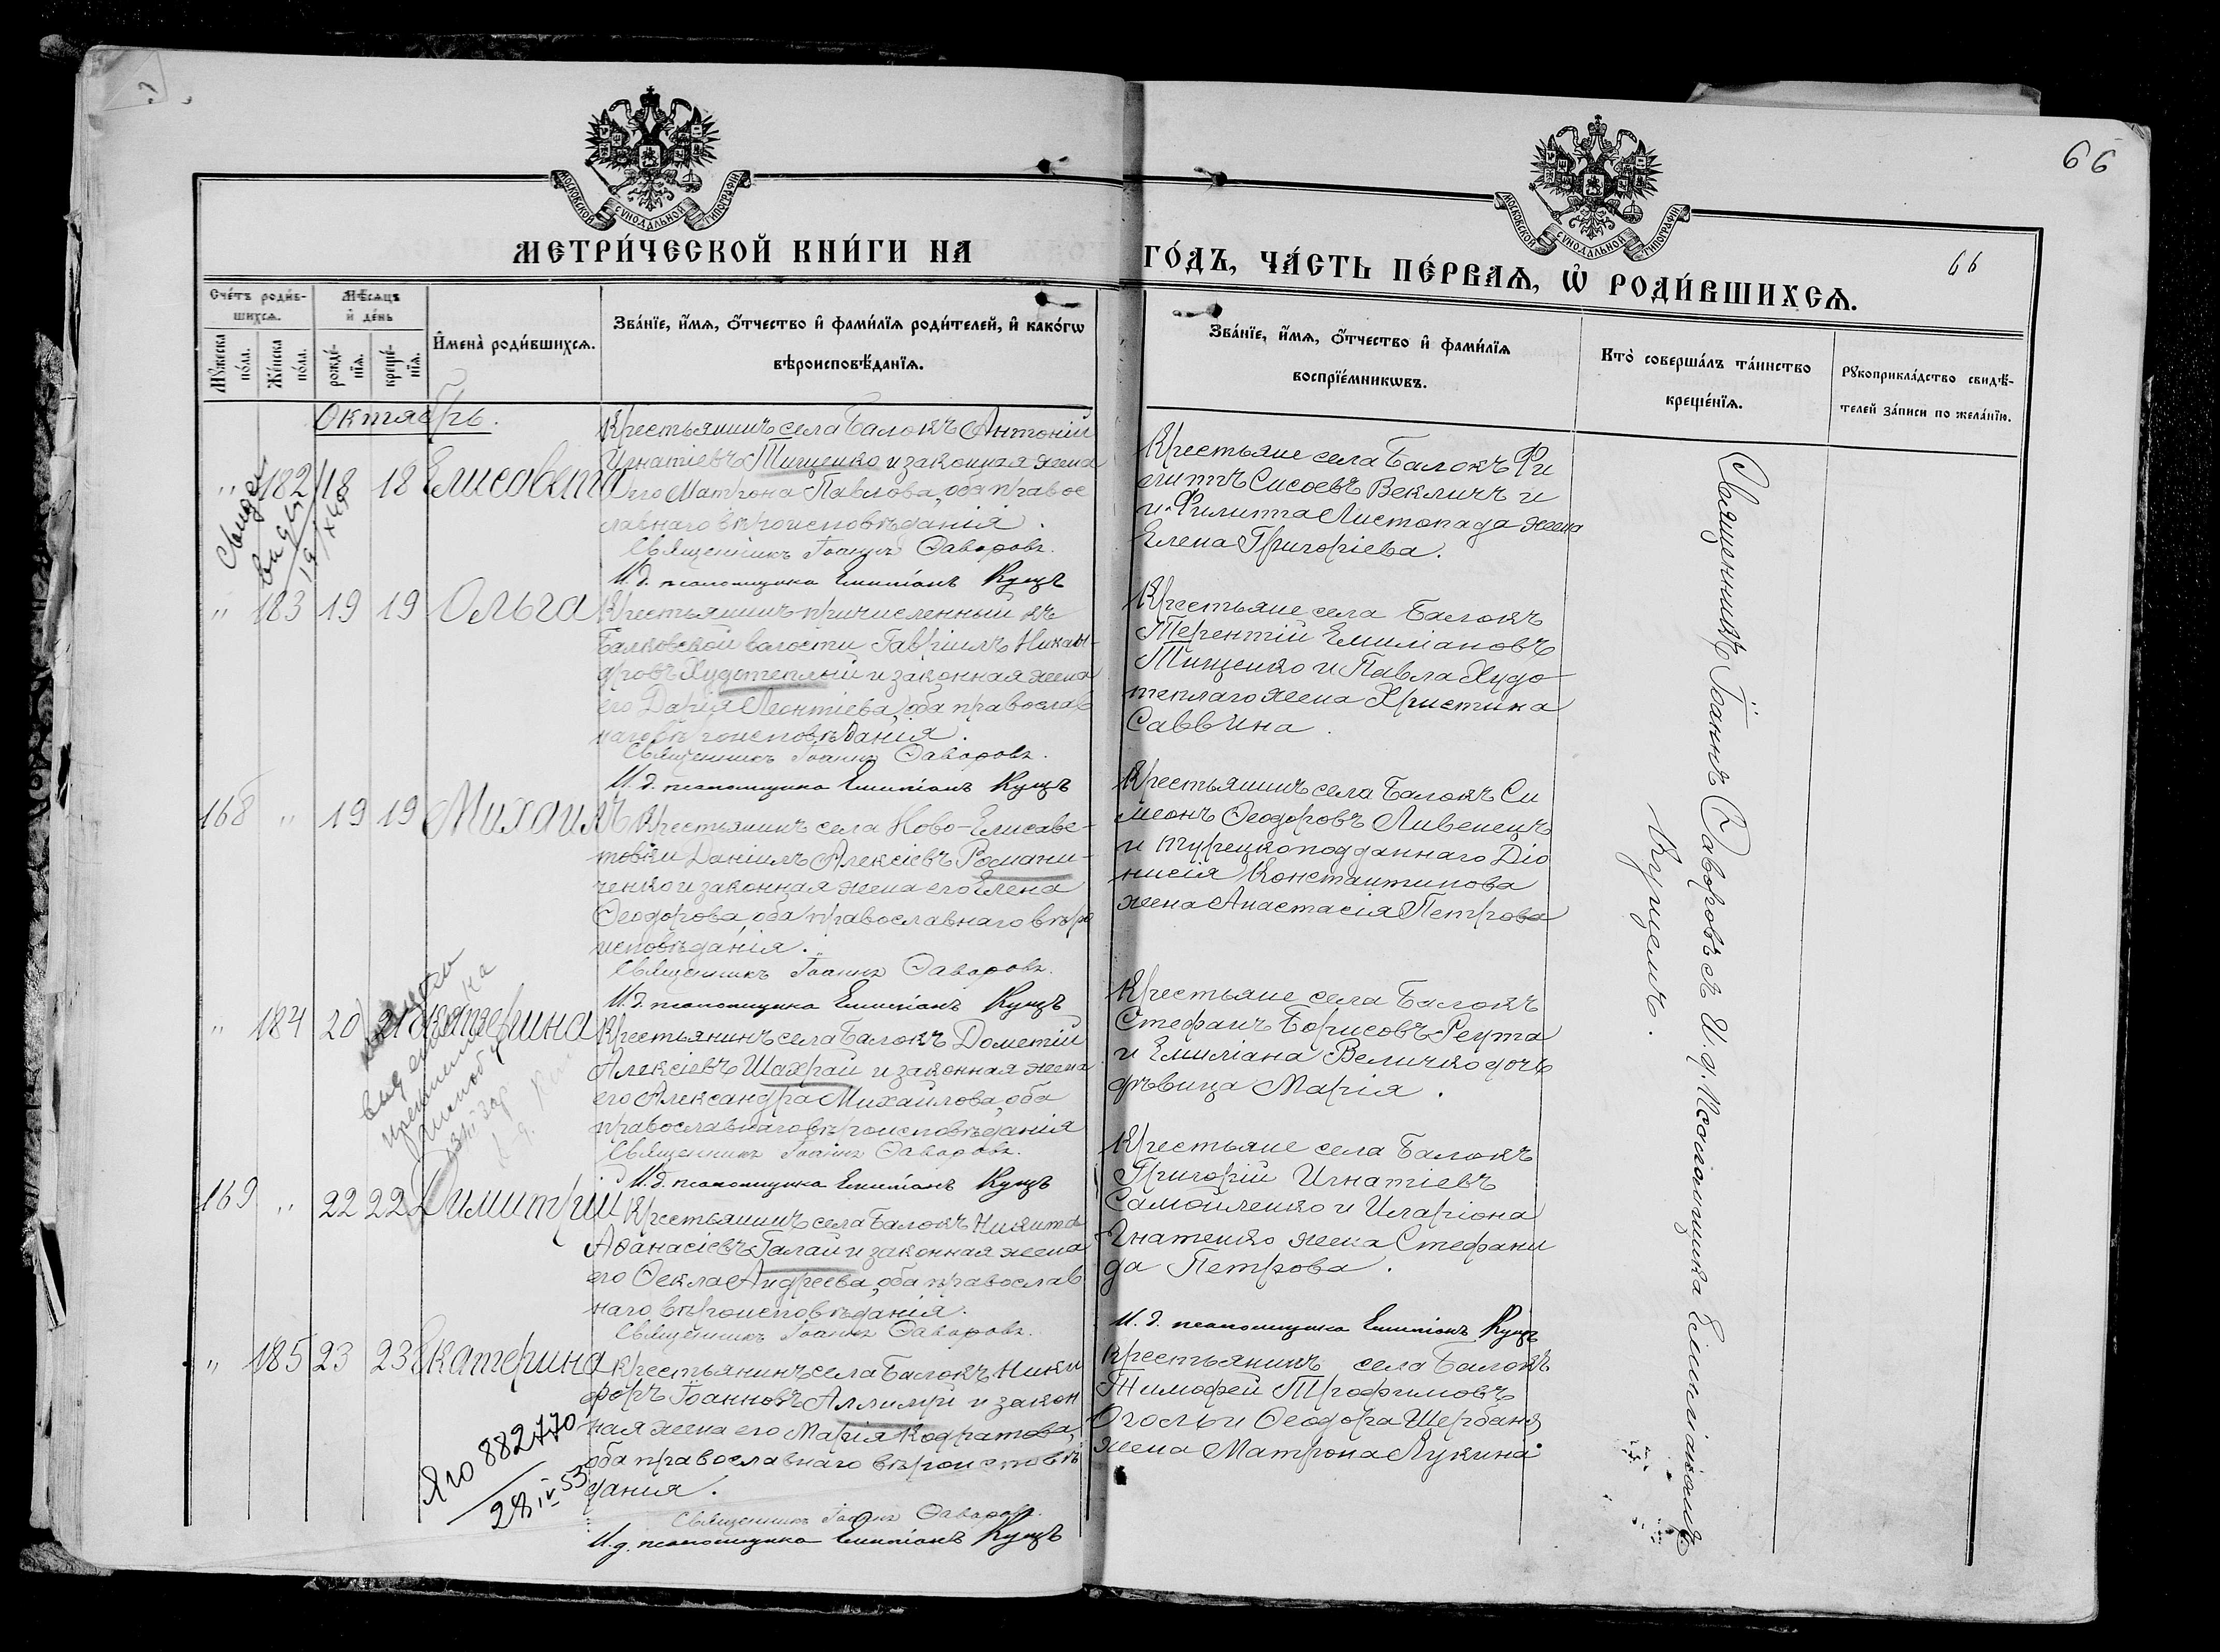 66
66
МОСКОВСКОЙ СѴНОДАЛЬНОЙ ТИПОГРАФІИ
МОСКОВСКОЙ СѴНОДАЛЬНОЙ ТИПОГРАФІИ
МЕТРИ́ЧЕСКОЙ КНИ́ГИ НА
ГО́ДЪ, ЧА́СТЬ ПЕ́РВАѦ, Ѡ҆ РОДИ́ВШИХСѦ.
Сче́тъ роди́в-
шихсѧ.
Мꙋ́жеска по́ла.
Же́нска по́ла.
Мѣ́сѧцъ
и҆ де́нь
рожде́-
нїѧ.
креще́-
нїѧ.
И҆мена̀ роди́вшихсѧ.
Зва́нїе, и҆́мѧ, ѻ҆́тчество и҆ фами́лїѧ роди́телей, и҆ како́гѡ
вѣроисповѣ́данїѧ.
Зва́нїе, и҆́мѧ, ѻ҆́тчество и҆ фами́лїѧ
воспрїе́мникѡвъ.
Кто̀ соверша́лъ та́инство
креще́нїѧ.
Рꙋкоприкла́дство свидѣ́-
телей за́писи по жела́нїю.
Октябрь.
" 182 18 18 Елисавета
Крестьянинъ села Балокъ Антоній
Игнатіевъ Тищенко и законная жена
его Матрона Павлова, оба правос
лавнаго вѣроисповѣданія.
Священникъ Іоаннъ Ѳаворовъ.
И.д. псаломщика Емиліанъ Кущъ
Крестьяне села Балокъ Фи
Сисоевъ Векличъ и
и Филиппа Листопада жена
Елена Григоріева.
" 183 19 19 Ольга
Крестьянинъ причисленный къ
Балковской волости Гавріилъ Никан-
дровъ Худотеплый и законная жена
его Дарія Леонтіева, оба православ
наго вѣроисповѣданія.
Священникъ Іоаннъ Ѳаворовъ.
И.д. псаломщика Емиліанъ Кущъ
Крестьяне села Балокъ
Терентій Емиліановъ
Тищенко и Павла Худо-
теплаго жена Христина
Саввина.
168 " 19 19 Михаилъ
Крестьянинъ села Ново-Елисаве-
товки Даніилъ Алексіевъ Романи-
ченко и законная жена его Елена
Ѳеодорова, оба православнаго вѣро
исповѣданія.
Священникъ Іоаннъ Ѳаворовъ.
И.д. псаломщика Емиліанъ Кущъ
Крестьянинъ села Балокъ Си
меонъ Ѳеодоровъ Ливенецъ
и турецкоподданнаго Діо
нисія Константинова
жена Анастасія Петрова
" 184 20 21 Екатерина
Крестьянинъ села Балокъ Дометій
Алексіевъ Шахрай и законная жена
его Александра Михайлова, оба
православнаго вѣроисповѣданія
Священникъ Іоаннъ Ѳаворовъ.
И.д. псаломщика Емиліанъ Кущъ
Крестьяне села Балокъ
Стефанъ Борисовъ Реута
и Емиліана Величко дочь
дѣвица Марія.
169 " 22 22 Димитрій
Крестьянинъ села Балокъ Никита
Аѳанасіевъ Галай и законная жена
его Ѳекла Андреева, оба православ
наго вѣроисповѣданія.
Священникъ Іоаннъ Ѳаворовъ.
Крестьяне села Балокъ
Григорій Игнатіевъ
Самойленко и Иларіона
Игнатенко жена Стефани
да Петрова.
И.д. псаломщика Емиліанъ Кущъ
" 185 23 23 Екатерина
Крестьянинъ села Балокъ Ники
форъ Іоанновъ и закон
ная жена его Марія Кодратова,
оба православнаго вѣроисповѣ
данія.
Священникъ Іоаннъ Ѳаворовъ.
И.д. псаломщика Емиліанъ Кущъ
Крестьянинъ села Балокъ
Тимофей Трофимовъ
и Ѳеодора Щербаня
жена Матрона Лукина.
882770
28 IV 53
Священникъ Іоаннъ Ѳаворовъ съ И.д. Псаломщика Емиліаномъ
Кущемъ.